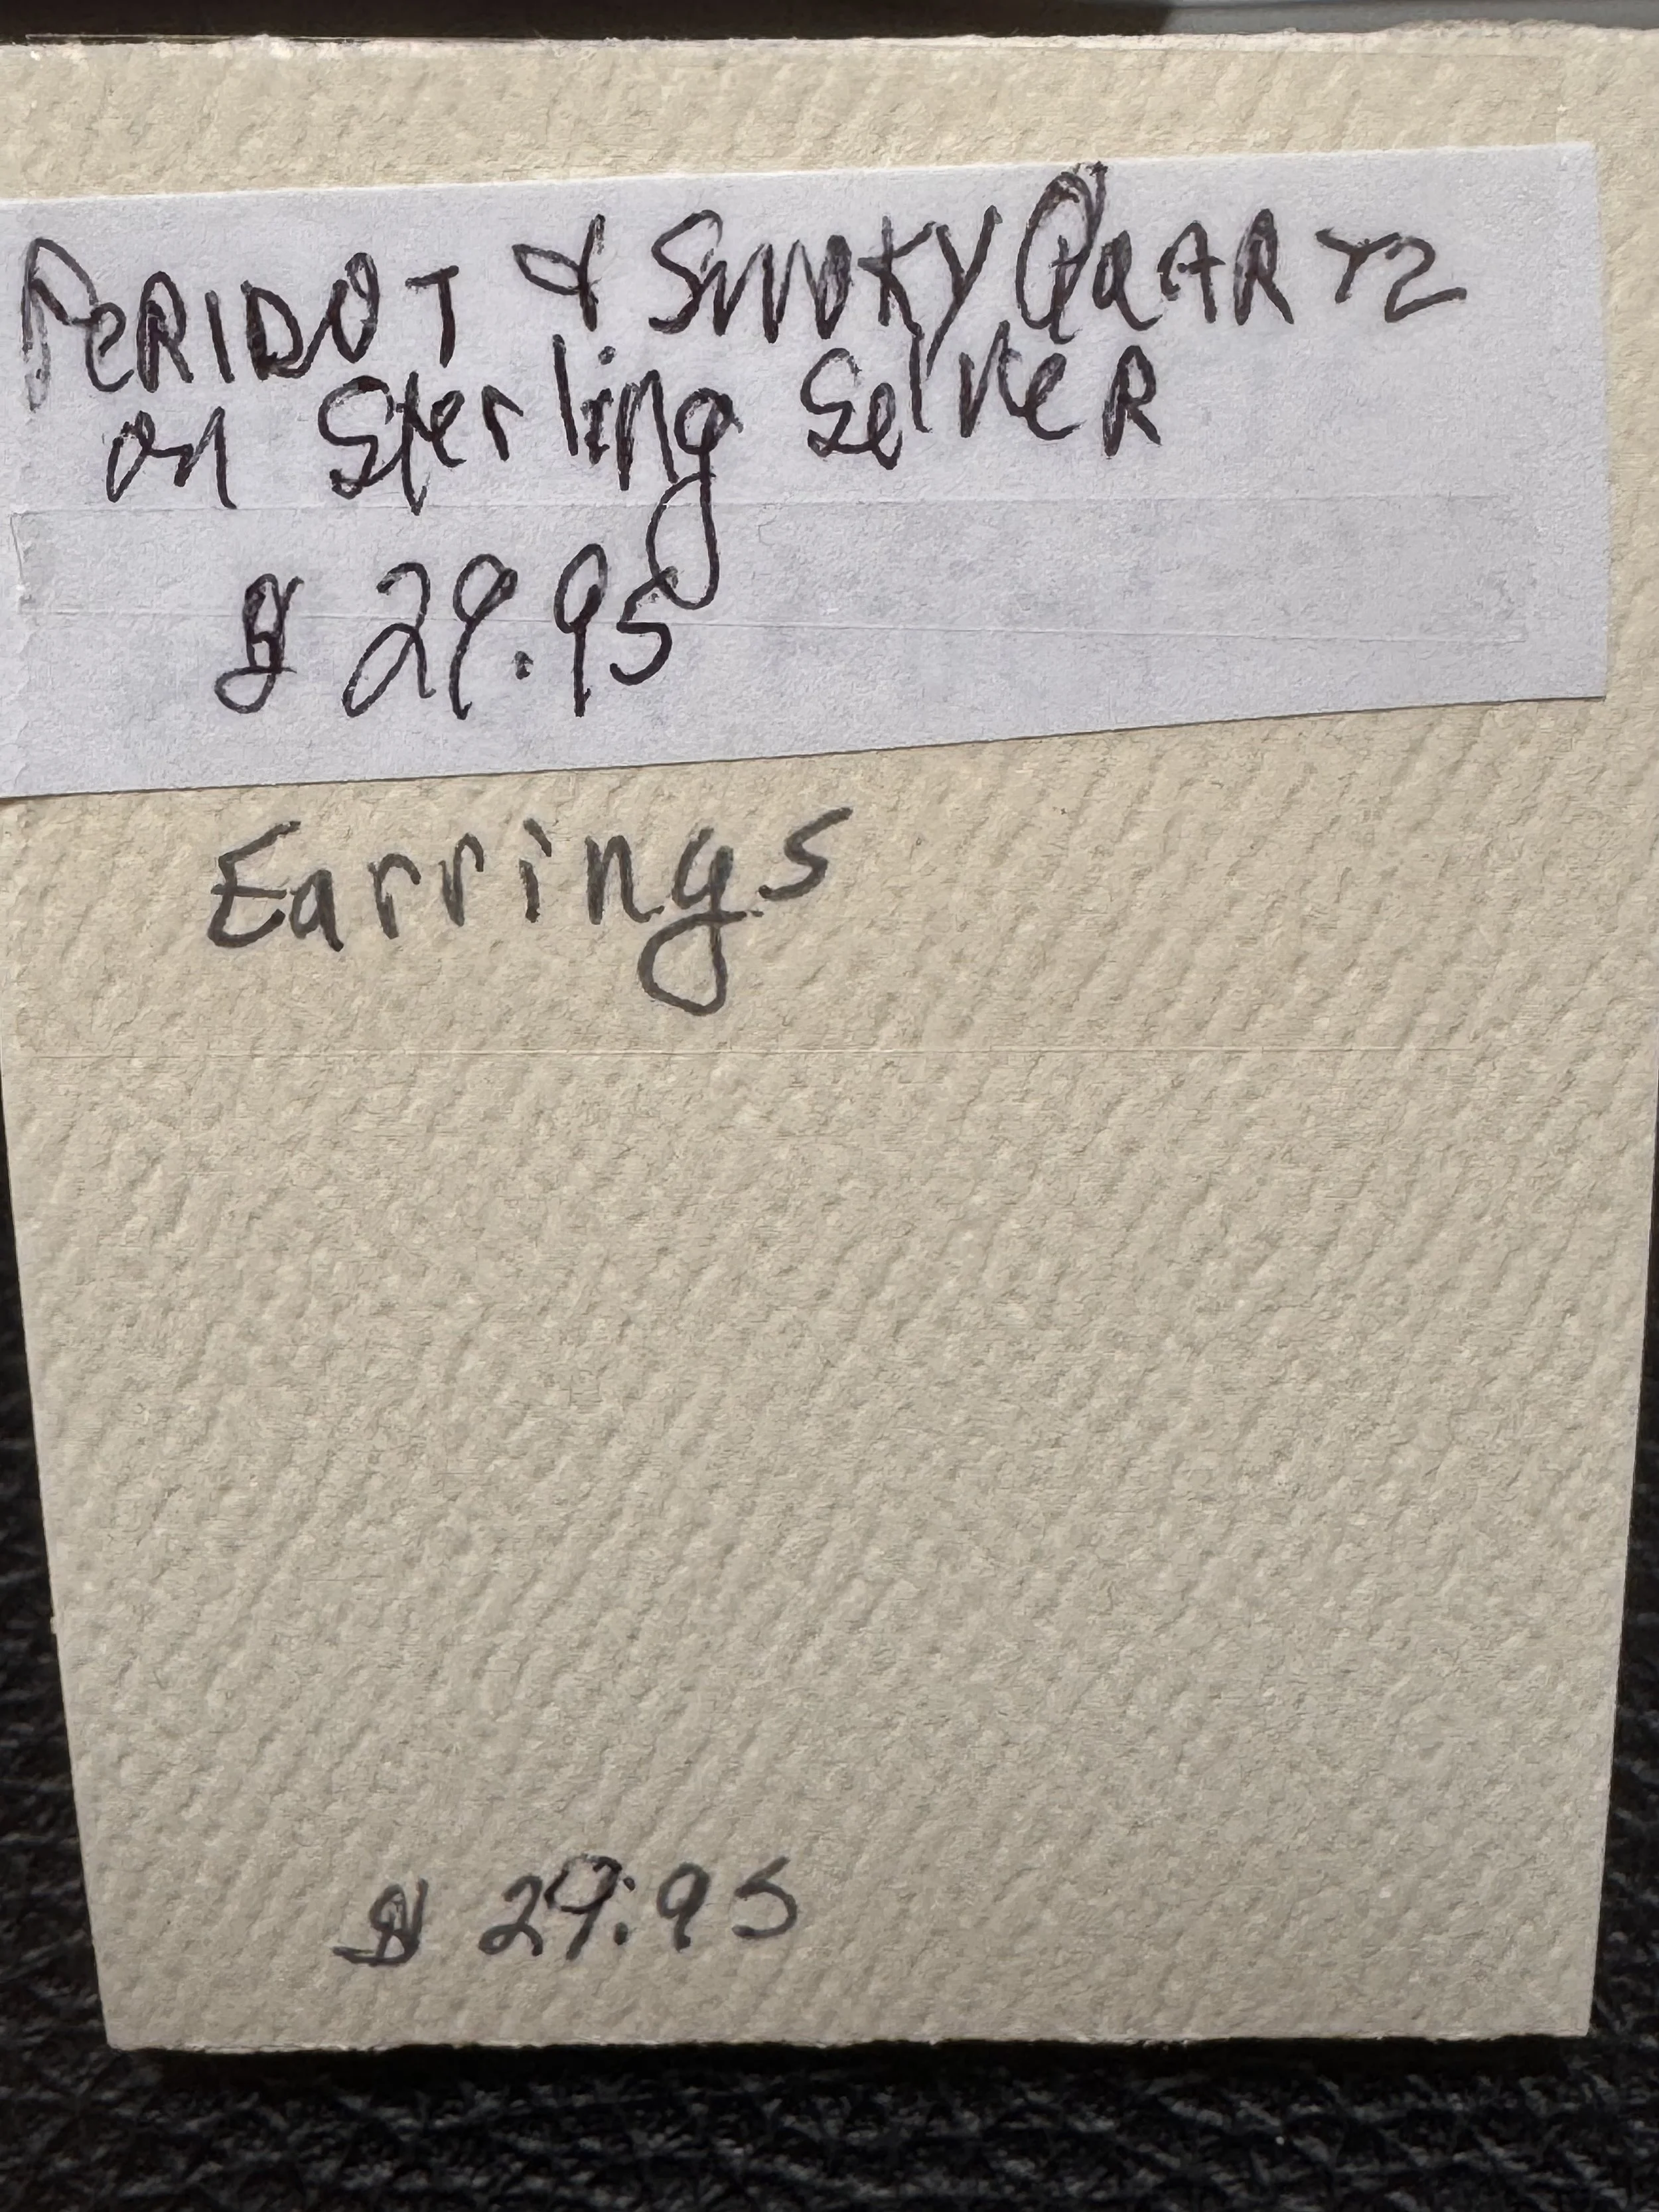 PeRIDOT & SMOKY QuARTZ
on Sterling SelveR
$ 29.95
Earrings
$ 29.95